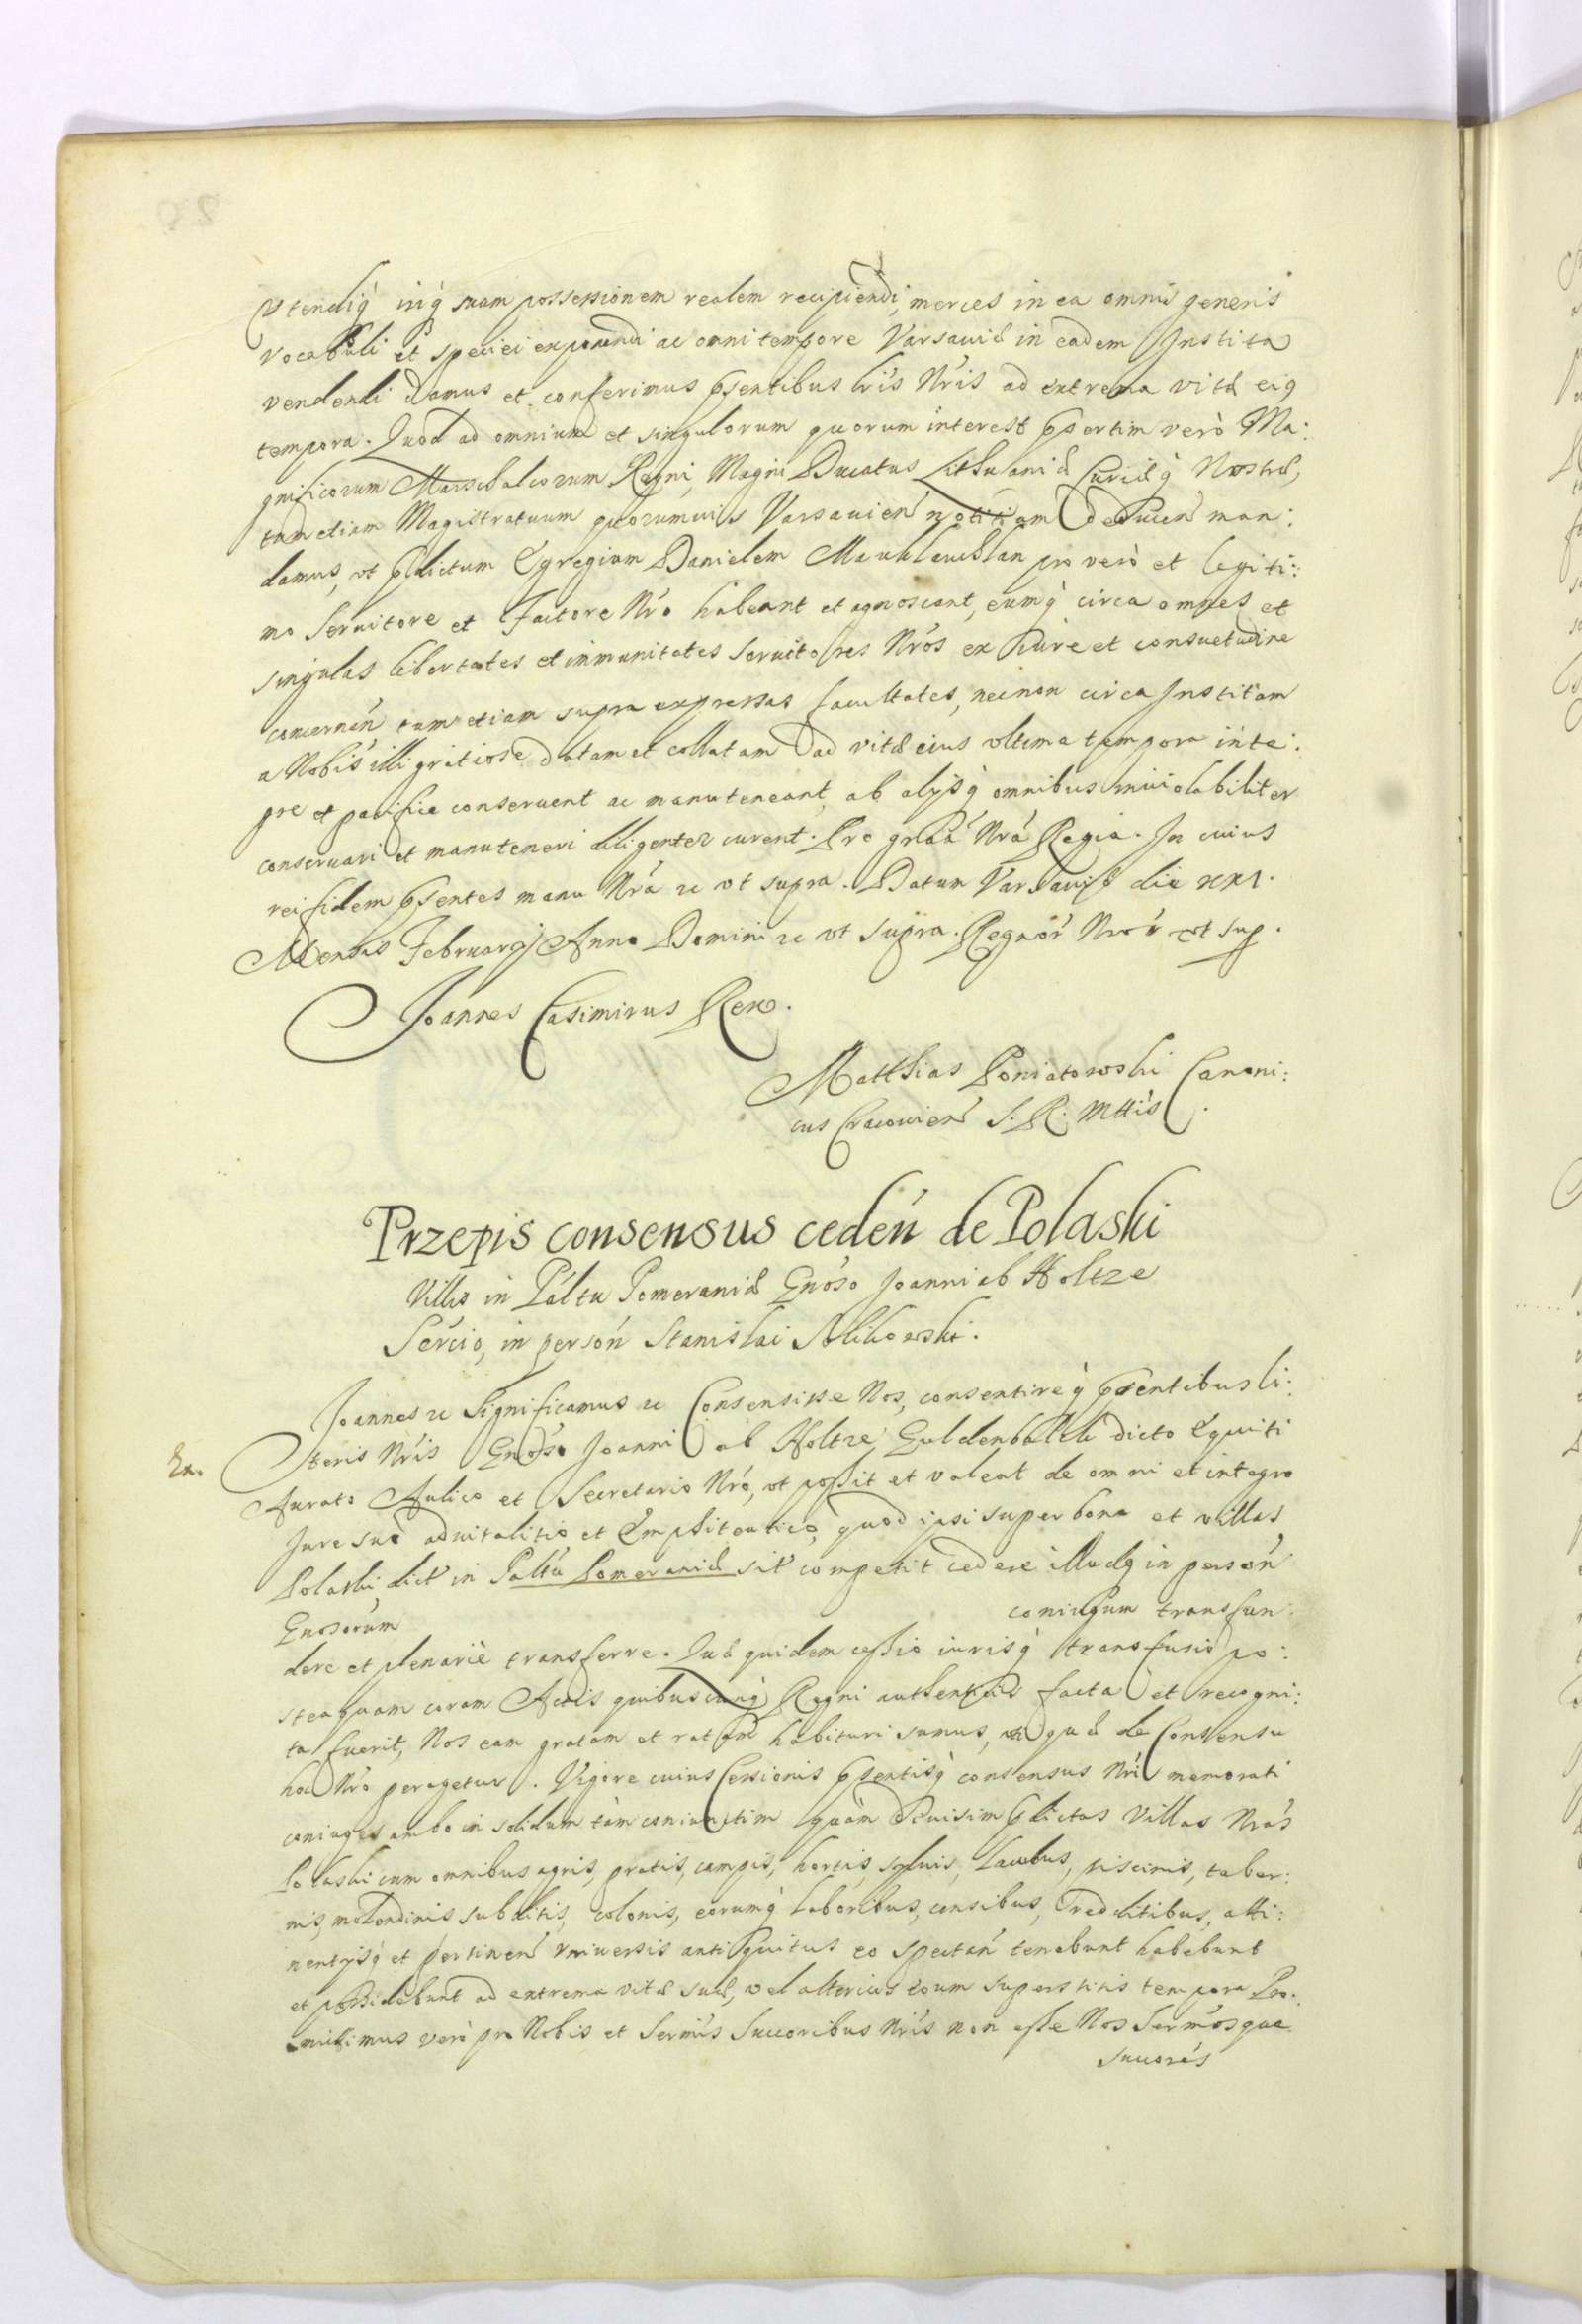 Vtendiq́ inq́ suam possessionem realem recipiendi, merces in ea omnis generis
vocabuli et speciei exponendi ac omni tempore Varsaviæ in eadem Instita
vendendi damus et conferimus pſentibus lris Nris ad extrema vitæ eig
tempora. Quod ad omnium et singulorum quorum interest pſertim verò Ma:
gnificorum Marschalcorum Regni, Magni Ducatus Lithuaniæ Curiæq́ Nostræ,
tum etiam Magistratuum quorumvis Varsavien notitiam deducen man:
damus, vt pdictum Egregium Danielem pro verò et legiti:
mo Servitore et Factore Nro habeant et agnoscant, eumq́ circa omnes et
singulas libertates et immunitates Servitores Nros ex Iure et consuetudine
concernen tum etiam supra expressas facultates, necnon circa Institam
a Nobis illi gratiose datam et collatam ad vitæ eius vltima tempora inte:
gre et pacifice conservent ac manuteneant, ab alijsq́ omnibus inviolabiliter
conservari et manuteneri diligenter curent. Pro graa Nra Regia. In cuius
rei fidem pſentes manu Nra &c vt supra. Datum Varsaviæ die XXI.
Mensis Februarij Anno Domini &c vt supra. Regnor Nror vt sup.
Joannes Casimirus Rex.
Matthias Poniatowski Canoni:
cus Cracovien S. R. Mttis
Przepis consensus ceden de Polaski
Villis in Paltu Pomeraniæ Gnoso Joanni ab Holtze
Sercio, in person Stanislai
Joannes &c Significamus &c Consensisse Nos, consentireq́ pſentibus li:
Ex. teris Nris Gnoso Joanni ab Holtze Guldenbalck dicto Equiti
Aurato Aulico et Secretario Nro, vt possit et valeat de omni et integro
Iure suo advitalitio et Emphiteutico, quod ipsi super bona et villas
Polaski dict in Paltu Pomeraniæ sit competit cedere illudq in person
Gnosorum coniugum transfun:
dere et plenariè transferre. Quæ quidem cessio iurisq́ transfusio po:
steaquam coram Actis quibuscunq́ Regni authenticis facta et recogni:
ta fuerit, Nos eam gratam et ratam habituri sumus, vti quæ de Consensu
hoc Nro peragetur. Vigore cuius Cessionis pſentisq́ consensus Nri memorati
coniuges ambo in solidum tàm coniunctim quàm divisim pdictas Villas Nras
Polaski cum omnibus agris, pratis, campis, hortis, sylvis, lacubus, piscinis, taber:
nis, molendinis subditis, colonis, eorumq́ laboribus, censibus, redditibus, atti:
nentijsq́ et pertinen vniversis antiquitus eo spectan tenebunt habebunt
et possidebunt ad extrema vitæ suæ, vel alterius eoum superstitis tempora Pro:
mittimus verò pro Nobis et Sermis Succoribus Nris non esse Nos Sermosque
succores